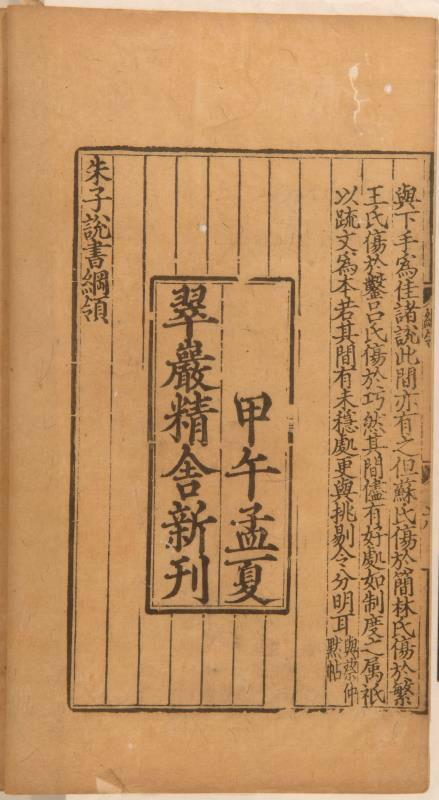 與下手爲佳諸說此間亦有之但蘇氏傷於簡林氏傷於繁
王氏傷於鑿呂氏傷於巧然其間儘有好處如制度之屬祇
以疏文爲本若其間有未穩處更與挑剔令分明耳與蔡仲默帖
甲午孟夏
翠巖精舍新刊
朱子說書綱領